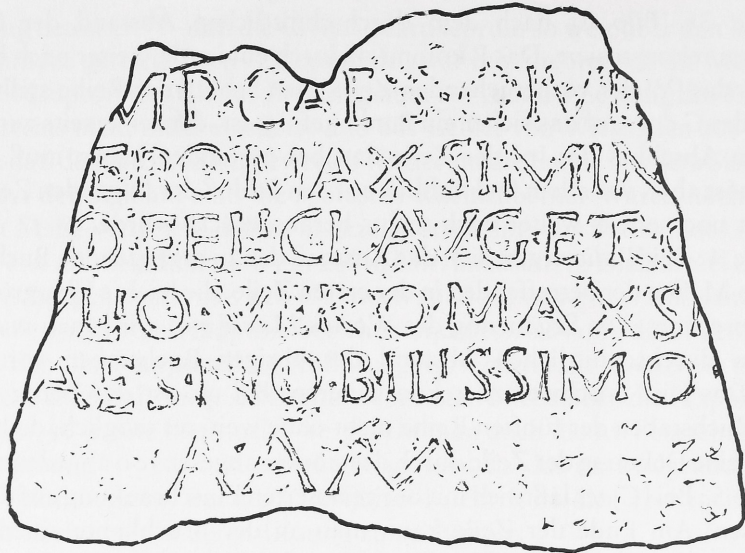 MP·CAES·C·IVL
ERO·MAXSIMIN
O·FELICI·AVG·ET·C
IVLIO·VERO·MAXSI
AES·NOBILISSIMO
AAAV